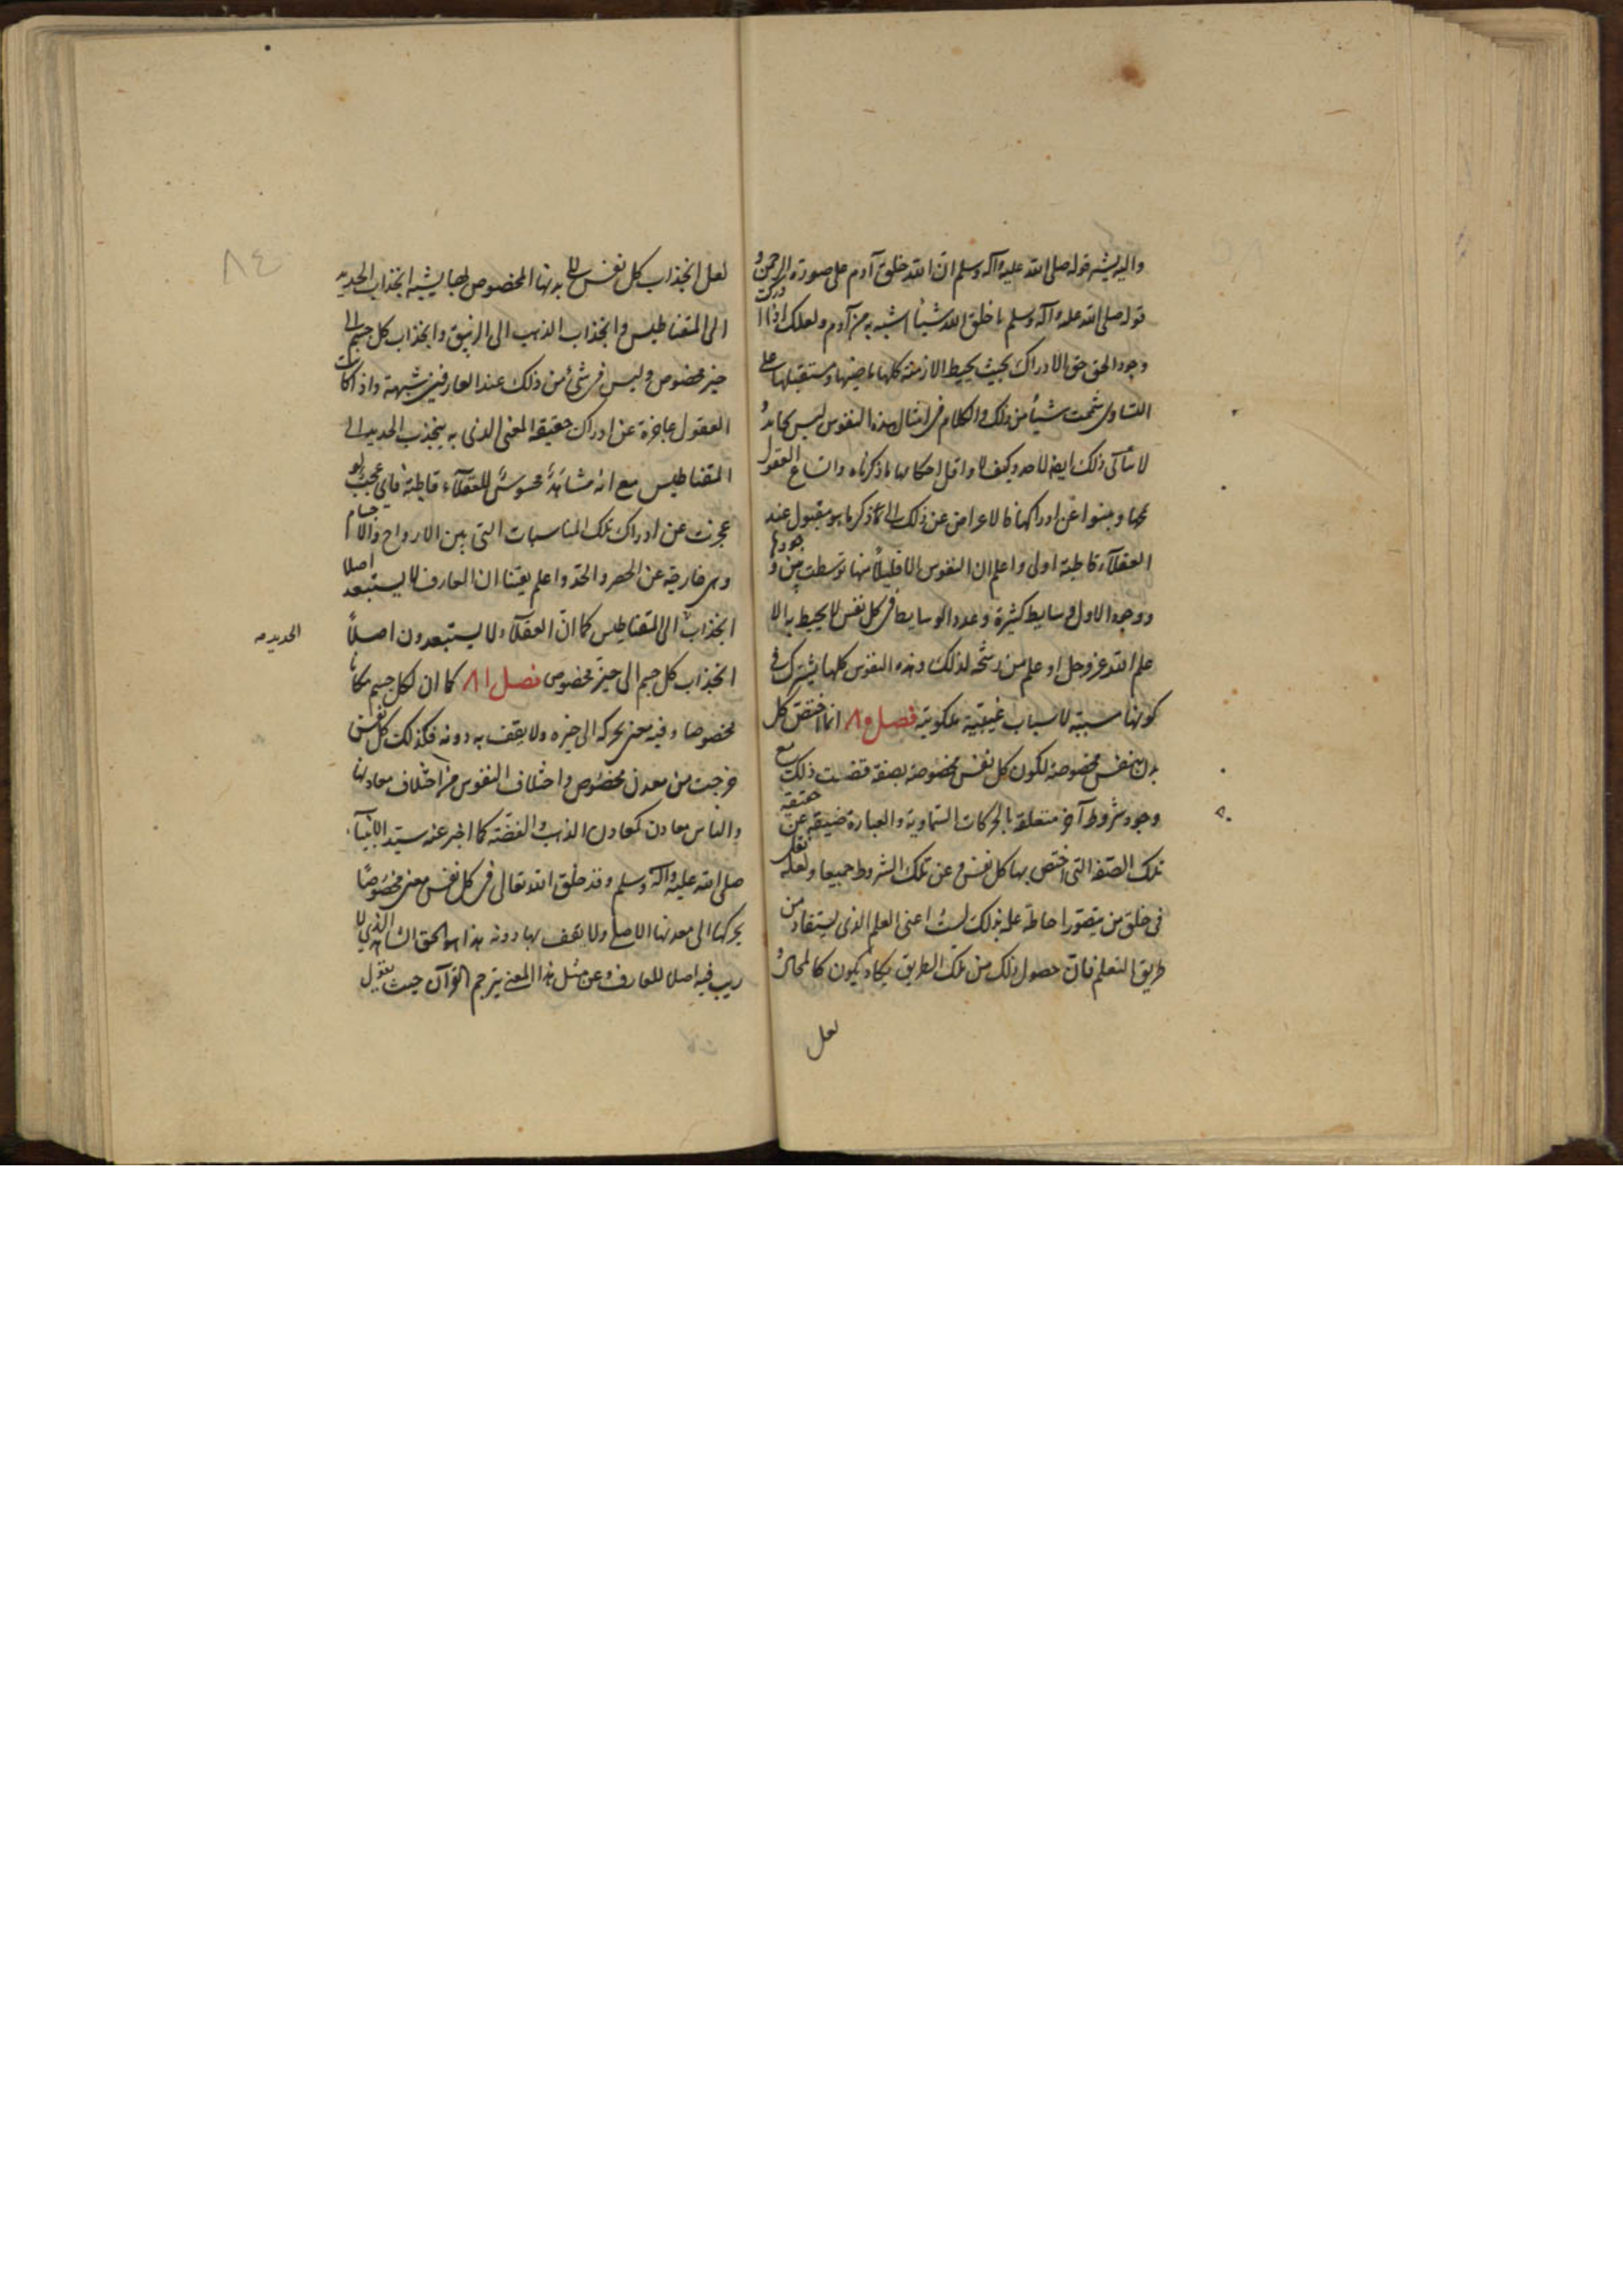 واليه يشير قوله صلى الله عليه وآله وسلم ان الله خلق آدم على صورة الرحمن و
قوله صلى الله عليه وآله وسلم ما خلق الله شيئا اشبه به من آدم ولعلك اذا ادركت
وجود الحق حق الادراك بحيث يحيط الازمنة كلها ماضيها ومستقبلها على
التساوى شممت شيئا من ذلك والكلام فى امثال هذه النفوس ليس كما
لا يتأتى ذلك ايضا لاحد وكيف لا واقل احكامها ما ذكرناه واتساع العقول
عن ادراكها فالاعراض عن ذلك الى ما ذكر ما هو مقبول عند
العقلاء قاطبة اولى واعلم ان النفوس الا قليلا منها توسطت بين وجودها
ووجود الاول وسايط كثيرة وعدد الوسايط فى كل نفس لا يحيط به الا
علم الله عز وجل او علم من رشحه لذلك وهذه النفوس كلها يشترك فى
كونها مسببة لاسباب غيبية ملكوتية فصل ٨٠ انما اختص كل
بدن بنفس مخصوصة لكون كل نفس مخصوصة بصفة قضت ذلك مع
وجود شروط آخر متعلقة بالحركات السماوية والعبارة ضيقة عن حقيقة
تلك الصفة التى اختص بها كل نفس وعن تلك الشروط جميعا ولعله
فى خلق من يتصور احاطة علمه بذلك لست اعنى العلم الذى يستفاد من
طريق التعلم فان حصول ذلك من تلك الطريق يكاد يكون كالمحال و
لعل
٨٤
لعل انجذاب كل نفس الى بدنها المخصوص بها يشبه انجذاب الحديد
الى المقناطيس وانجذاب الذهب الى الزيبق وانجذاب كل جسم الى
حيز مخصوص وليس فى شئ من ذلك عند العارفين شبهة واذا كانت
العقول عاجزة عن ادراك حقيقة المعنى الذى به ينجذب الحديد الى
المقناطيس مع انه مشاهدة محسوسة للعقلاء قاطبة فاى عجب لو
عجزت عن ادراك تلك المناسبات التى بين الارواح والاجسام
وهى خارجة عن الحصر والحد واعلم يقينا ان العارف لا يستبعد اصلا
انجذاب الى المقناطيس كما ان العقلاء لا يستبعدون اصلا
الحديد صح
انجذاب كل جسم الى حيز مخصوص فصل ٨١ كما ان لكل جسم مكانا
مخصوصا وفيه معنى يحركه الى حيزه ولا يقف به دونه فكذلك كل نفس
خرجت من معدن مخصوص واختلاف النفوس من اختلاف معادنها
والناس معادن كمعادن الذهب والفضة كما اخبر عنه سيد الانبيآء
صلى الله عليه وآله وسلم وقد خلق الله تعالى فى كل نفس معنى مخصوصا
يحركها الى معدنها الاصلى ولا يقف بها دونه هذا هو الحق الذى لا
ريب فيه اصلا للعارف وعن مثل هذا المعنى يترجم القرآن حيث يقول